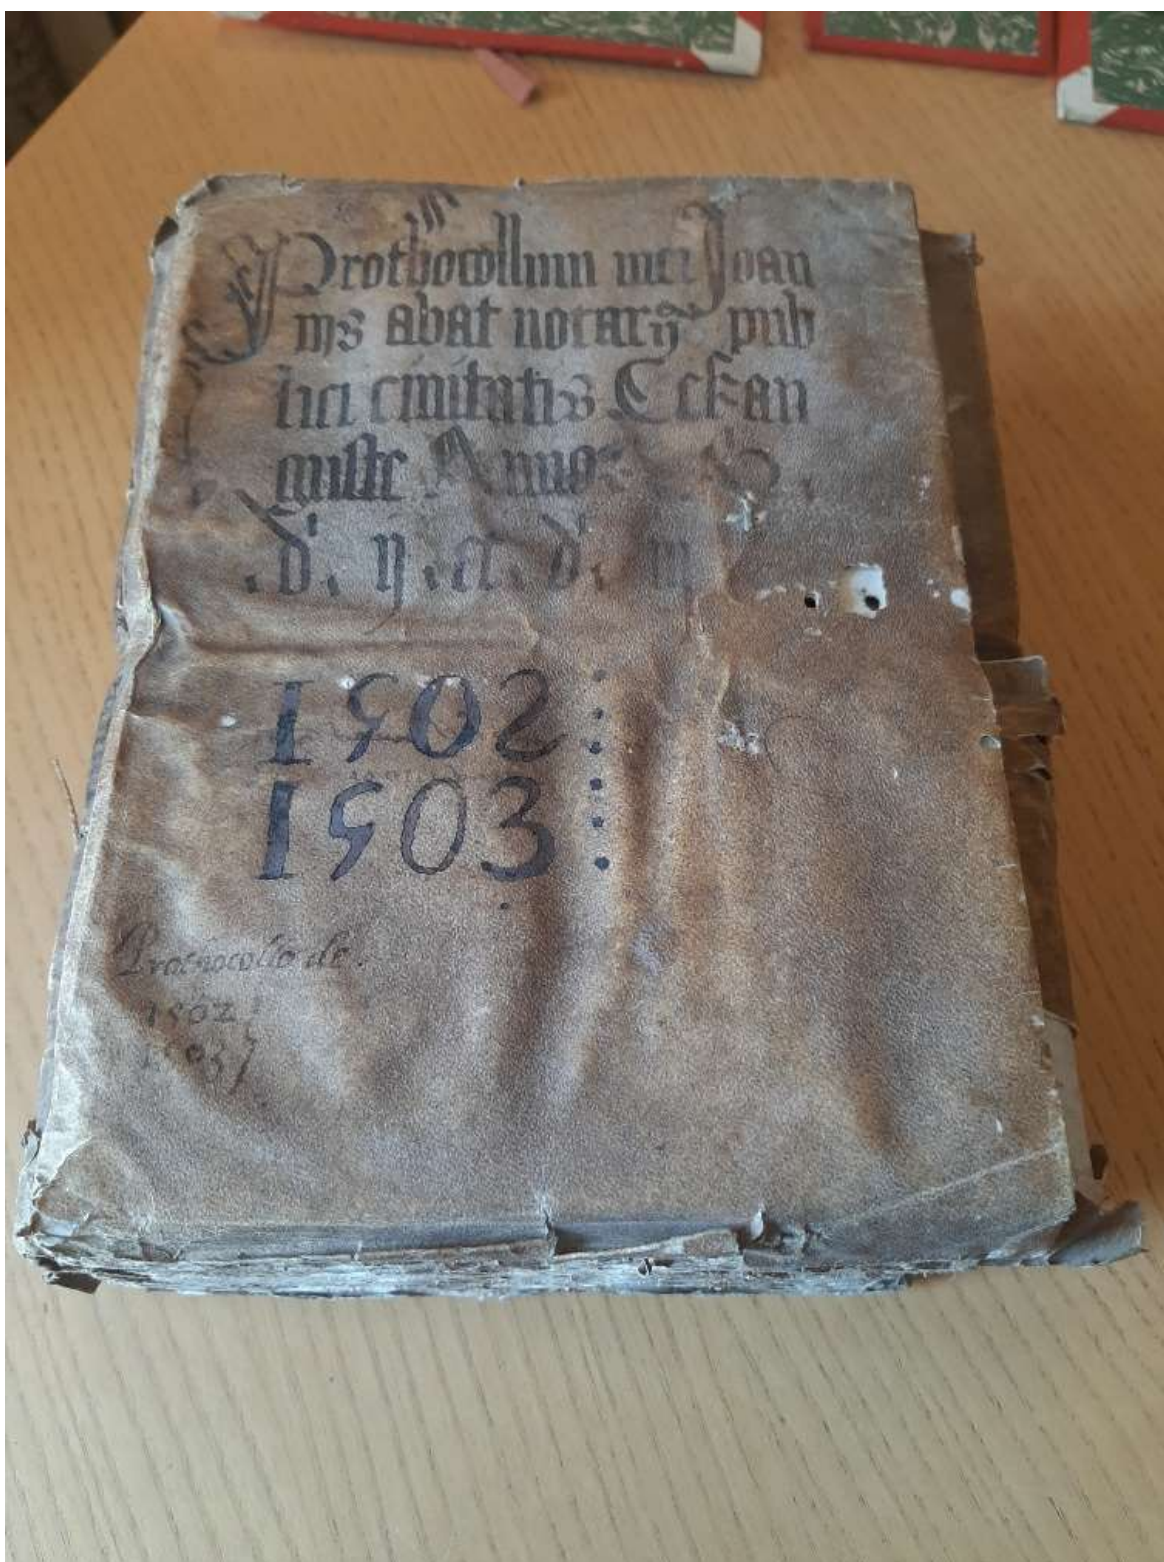 Prothocollum mei Joan
nis abat notarij pub
lici ciuitatis Cesar
auguste Anno
.d. ij. et. d. iij
1502
1503
Prothocollo de
1502
1503